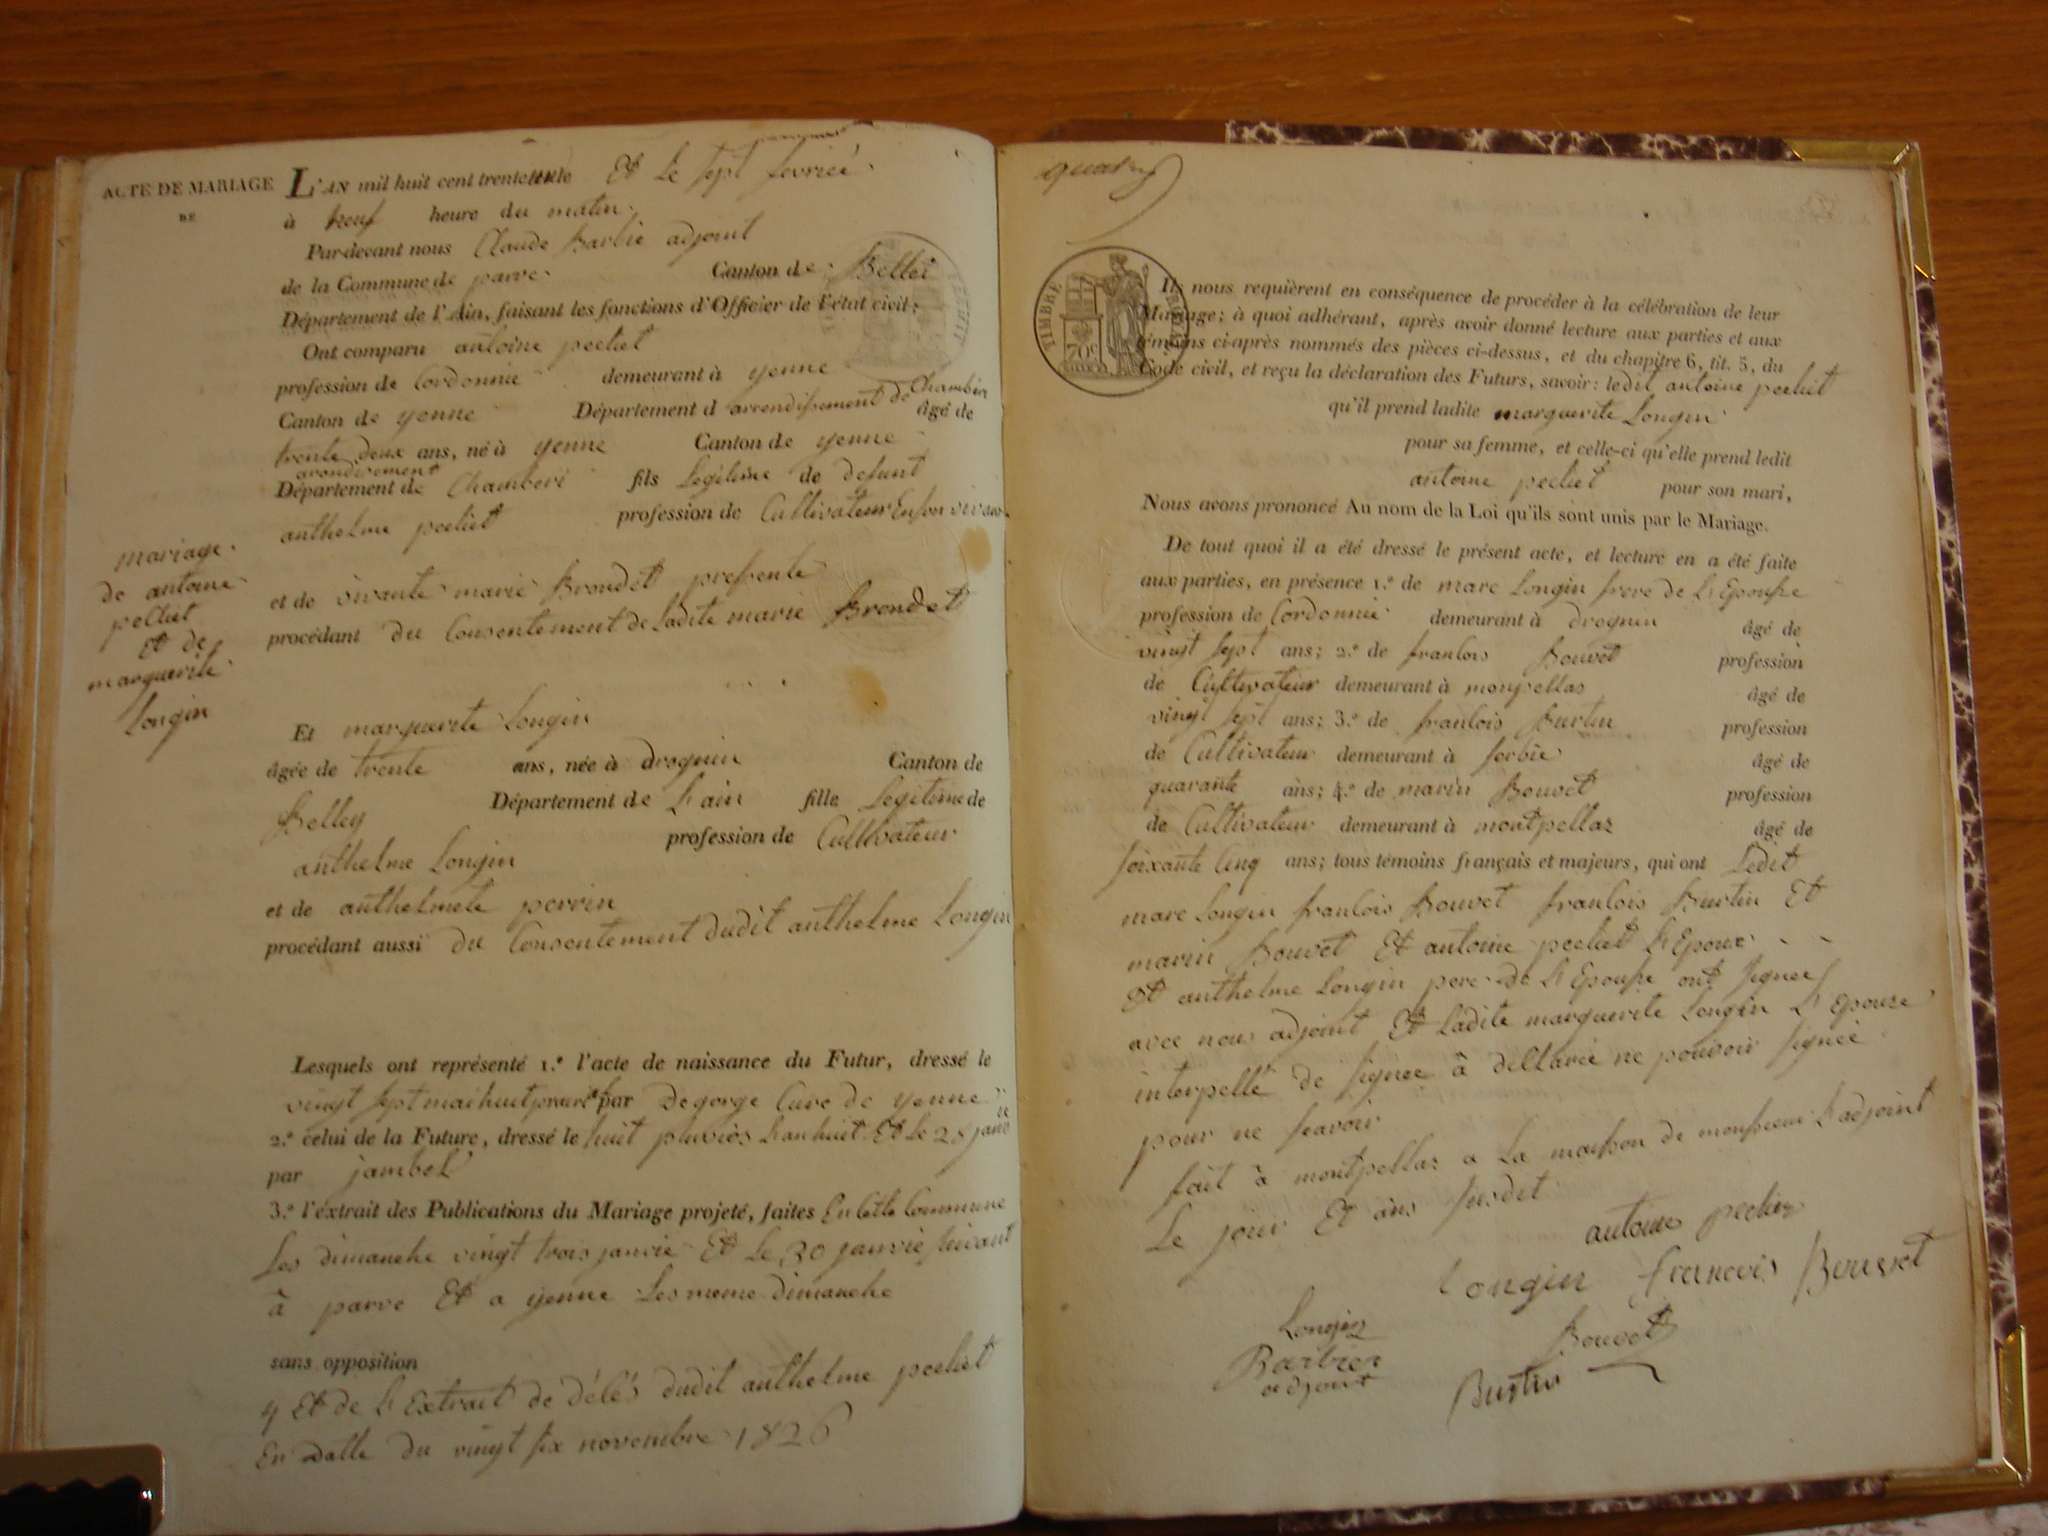 ACTE DE MARIAGE
DE
mariage
de antoine
pecliet
Et de
marguerite
Longin
L'AN mil huit cent trente Et le sept fevrier
à neuf heure du matin.
Par-devant nous Claude Barbie adjoint
de la Commune de parve Canton de Bellei
Département de l'Ain, faisant les fonctions d'Officier de l'état civil;
Ont comparu antoine pecliet
profession de Cordonnie demeurant à yenne
Canton de yenne Département d arrondissement de Chamberi âgé de
trente deux ans, né à yenne Canton de yenne
arondisement
Département de Chamberi fils Legitime de defunt
anthelme pecliet profession de Cultivateur En son vivan
et de vivante marie Brondet pressente
procédant du Consentement de Ladite marie Brondet
Et marguerite Longin
âgée de trente ans, née à drognin Canton de
Belley Département de L'ain fille Legitime de
anthelme Longin profession de Cultivateur
et de anthelmete perrin
procédant aussi du Consentement dudit anthelme Longin
Lesquels ont représenté 1.º l'acte de naissance du Futur, dressé le
vingt sept mai huit par Degorge Cure de yenne
2.º celui de la Future, dressé le huit pluvios L'an huit Et Le 28 janv
par jambel
3.º l'extrait des Publications du Mariage projeté, faites En Cette Commune
Les dimanche vingt trois janvie Et Le 30 janvie suivant
à parve Et a yenne Les meme dimanche
sans opposition
4 Et de L'Extrait de délés dudit anthelme pecliet
En Datte du vingt six novembre 1826
quatre
TIMBRE ROYAL
70c
Ils nous requièrent en conséquence de procéder à la célébration de leur
Mariage; à quoi adhérant, après avoir donné lecture aux parties et aux
témoins ci-après nommés des pièces ci-dessus, et du chapitre 6, tit. 5, du
Code civil, et reçu la déclaration des Futurs, savoir: ledit antoine pecliet
qu'il prend ladite marguerite Longin
pour sa femme, et celle-ci qu'elle prend ledit
antoine pecliet pour son mari,
Nous avons prononcé Au nom de la Loi qu'ils sont unis par le Mariage.
De tout quoi il a été dressé le présent acte, et lecture en a été faite
aux parties, en présence 1.º de marc Longin frere de L'Epousse
profession de Cordonnie demeurant à drognin âgé de
vingt sept ans; 2.º de franCois Bouvet profession
de Cultivateur demeurant à monpellas âgé de
vingt sept ans; 3.º de franCois Burtin profession
de Cultivateur demeurant à sorbie âgé de
quarante ans; 4.º de marin Bouvet profession
de Cultivateur demeurant à montpellas âgé de
soixante Cinq ans; tous témoins français et majeurs, qui ont Ledit
marc Longin franCois Bouvet franCois Burtin Et
marin Bouvet Et antoine pecliet L'Epoux
Et anthelme Longin pere de L'Epousse ont signer
avec nous adjoint Et Ladite marguerite Longin L'Epouze
interpellé de signer à déClaré ne pouvoir signee
pour ne savoir
fait à montpellas a La maisson de monsieur L'adjoint
Le jour Et ans susdit
antoine peclier
Longin francois Bouvet
Longin Bouvet
Barbier
adjoint
Burtin